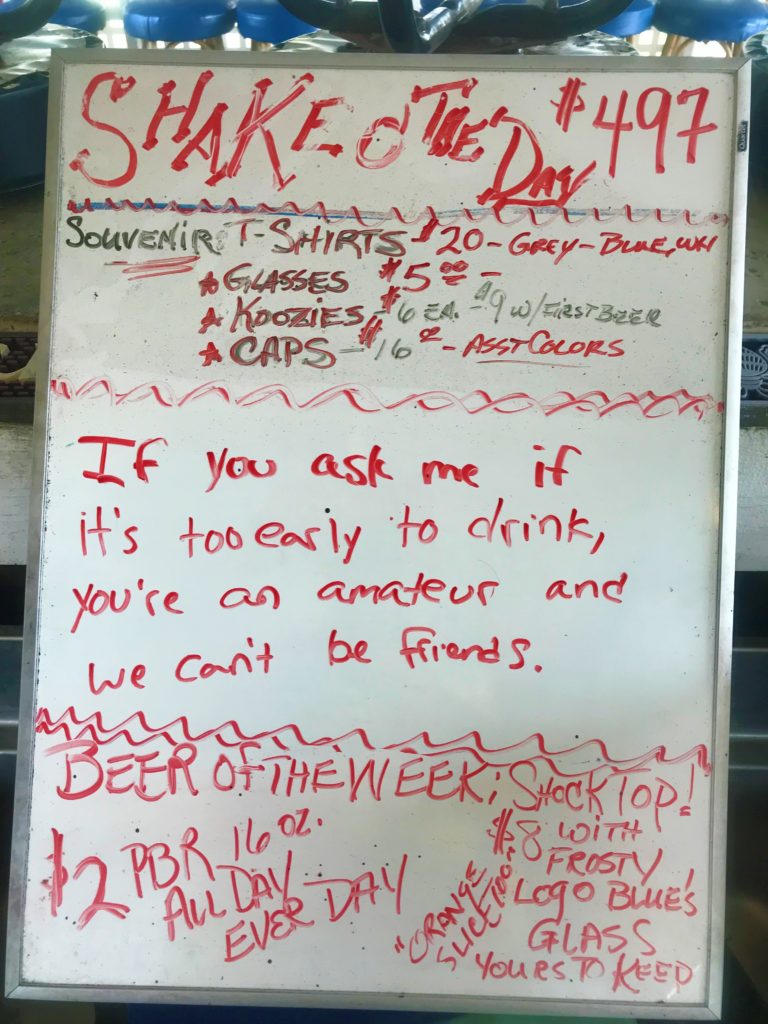 SHAKE O THE DAY $497
SOUVENIR T-SHIRTS $20 - GREY - BLUE, WH
★ GLASSES $5.00 -
★ KOOZIES - $6 EA. - $9 W/ FIRST BEER
★ CAPS - $16 - ASST COLORS
If you ask me if
it's too early to drink,
you're an amateur and
we can't be friends.
BEER OF THE WEEK; SHOCK TOP!
$2 PBR 16 OZ.
ALL DAY
EVER DAY
$8 WITH
FROSTY,
LOGO BLUE'S
GLASS
YOURS TO KEEP
"ORANGE
SLICE TOO"